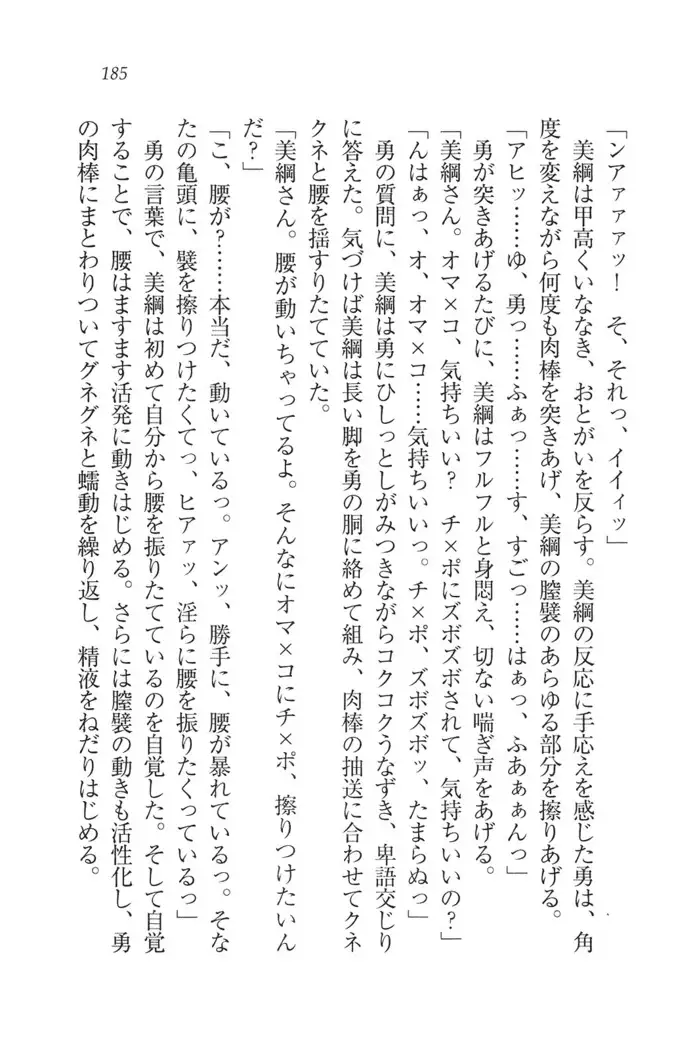 185
「ンアァァァッ！　そ、それっ、イイィッ」
　美綱は甲高くいななき、おとがいを反らす。美綱の反応に手応えを感じた勇は、角
度を変えながら何度も肉棒を突きあげ、美綱の膣襞のあらゆる部分を擦りあげる。
「アヒッ……ゆ、勇っ……ふぁっ……す、すごっ……はぁっ、ふあぁぁんっ」
　勇が突きあげるたびに、美綱はフルフルと身悶え、切ない喘ぎ声をあげる。
「美綱さん。オマ×コ、気持ちいい？　チ×ポにズボズボされて、気持ちいいの？」
「んはぁっ、オ、オマ×コ……気持ちいいっ。チ×ポ、ズボズボッ、たまらぬっ」
　勇の質問に、美綱は勇にひしっとしがみつきながらコクコクうなずき、卑語交じり
に答えた。気づけば美綱は長い脚を勇の胴に絡めて組み、肉棒の抽送に合わせてクネ
クネと腰を揺すりたてていた。
「美綱さん。腰が動いちゃってるよ。そんなにオマ×コにチ×ポ、擦りつけたいん
だ？」
「こ、腰が？……本当だ、動いているっ。アンッ、勝手に、腰が暴れているっ。そな
たの亀頭に、襞を擦りつけたくてっ、ヒアァッ、淫らに腰を振りたくっているっ」
　勇の言葉で、美綱は初めて自分から腰を振りたてているのを自覚した。そして自覚
することで、腰はますます活発に動きはじめる。さらには膣襞の動きも活性化し、勇
の肉棒にまとわりついてグネグネと蠕動を繰り返し、精液をねだりはじめる。